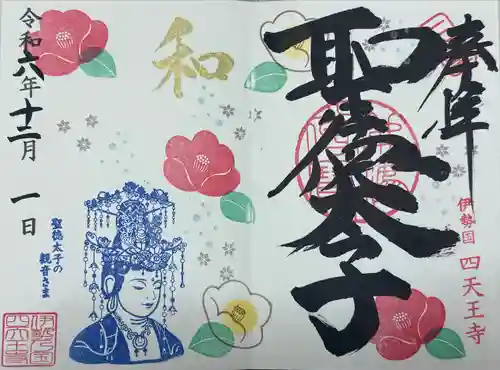 奉拝
聖徳太子
伊勢国 四天王寺
和
令和六年十二月一日
聖徳太子の
観音さま
伊勢之国
四天王寺